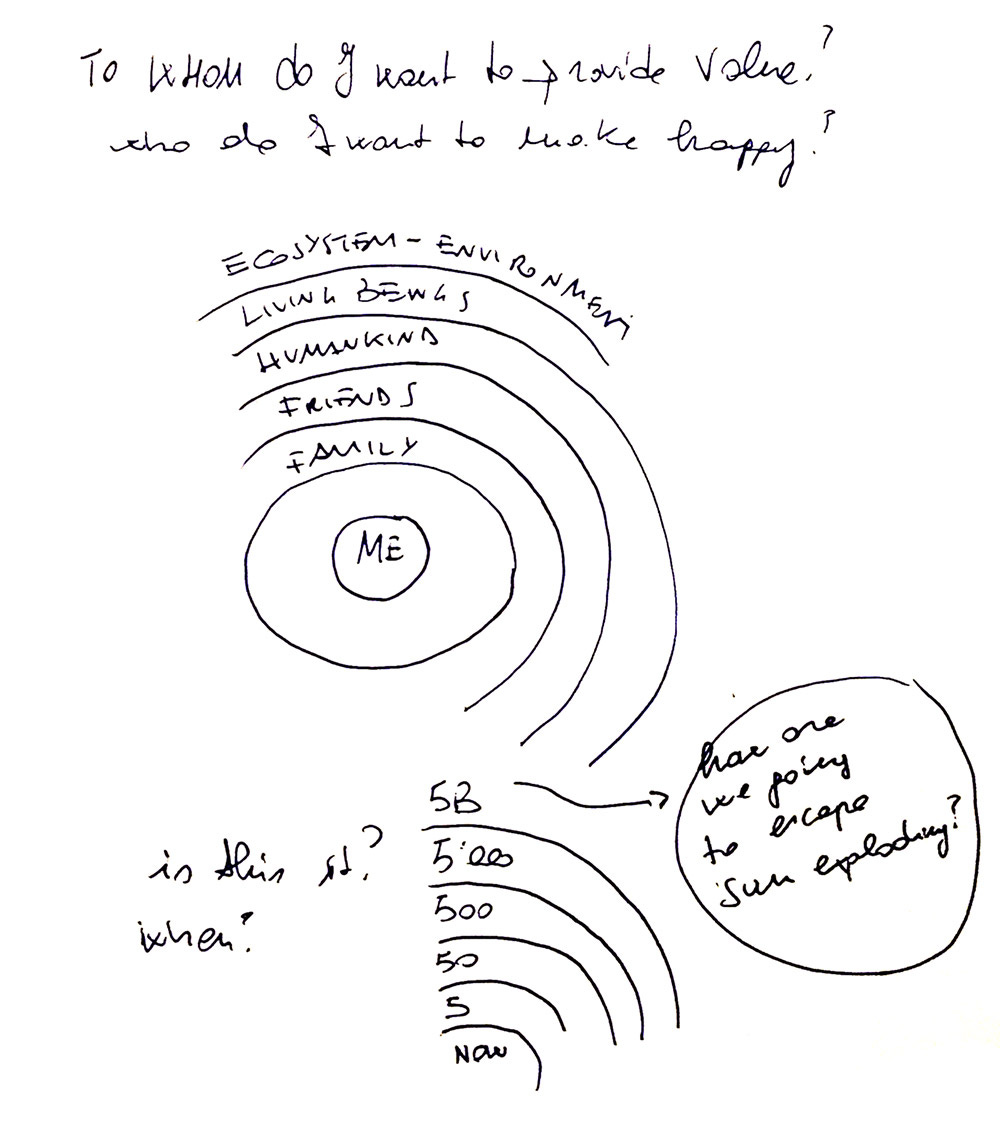 To WHOM do I want to provide value?
who do I want to make happy?
ECOSYSTEM - ENVIRONMENT
LIVING BEINGS
HUMANKIND
FRIENDS
FAMILY
ME
5B
5'000
500
50
5
NOW
is this it?
when?
how are
we going
to escape
sun exploding?